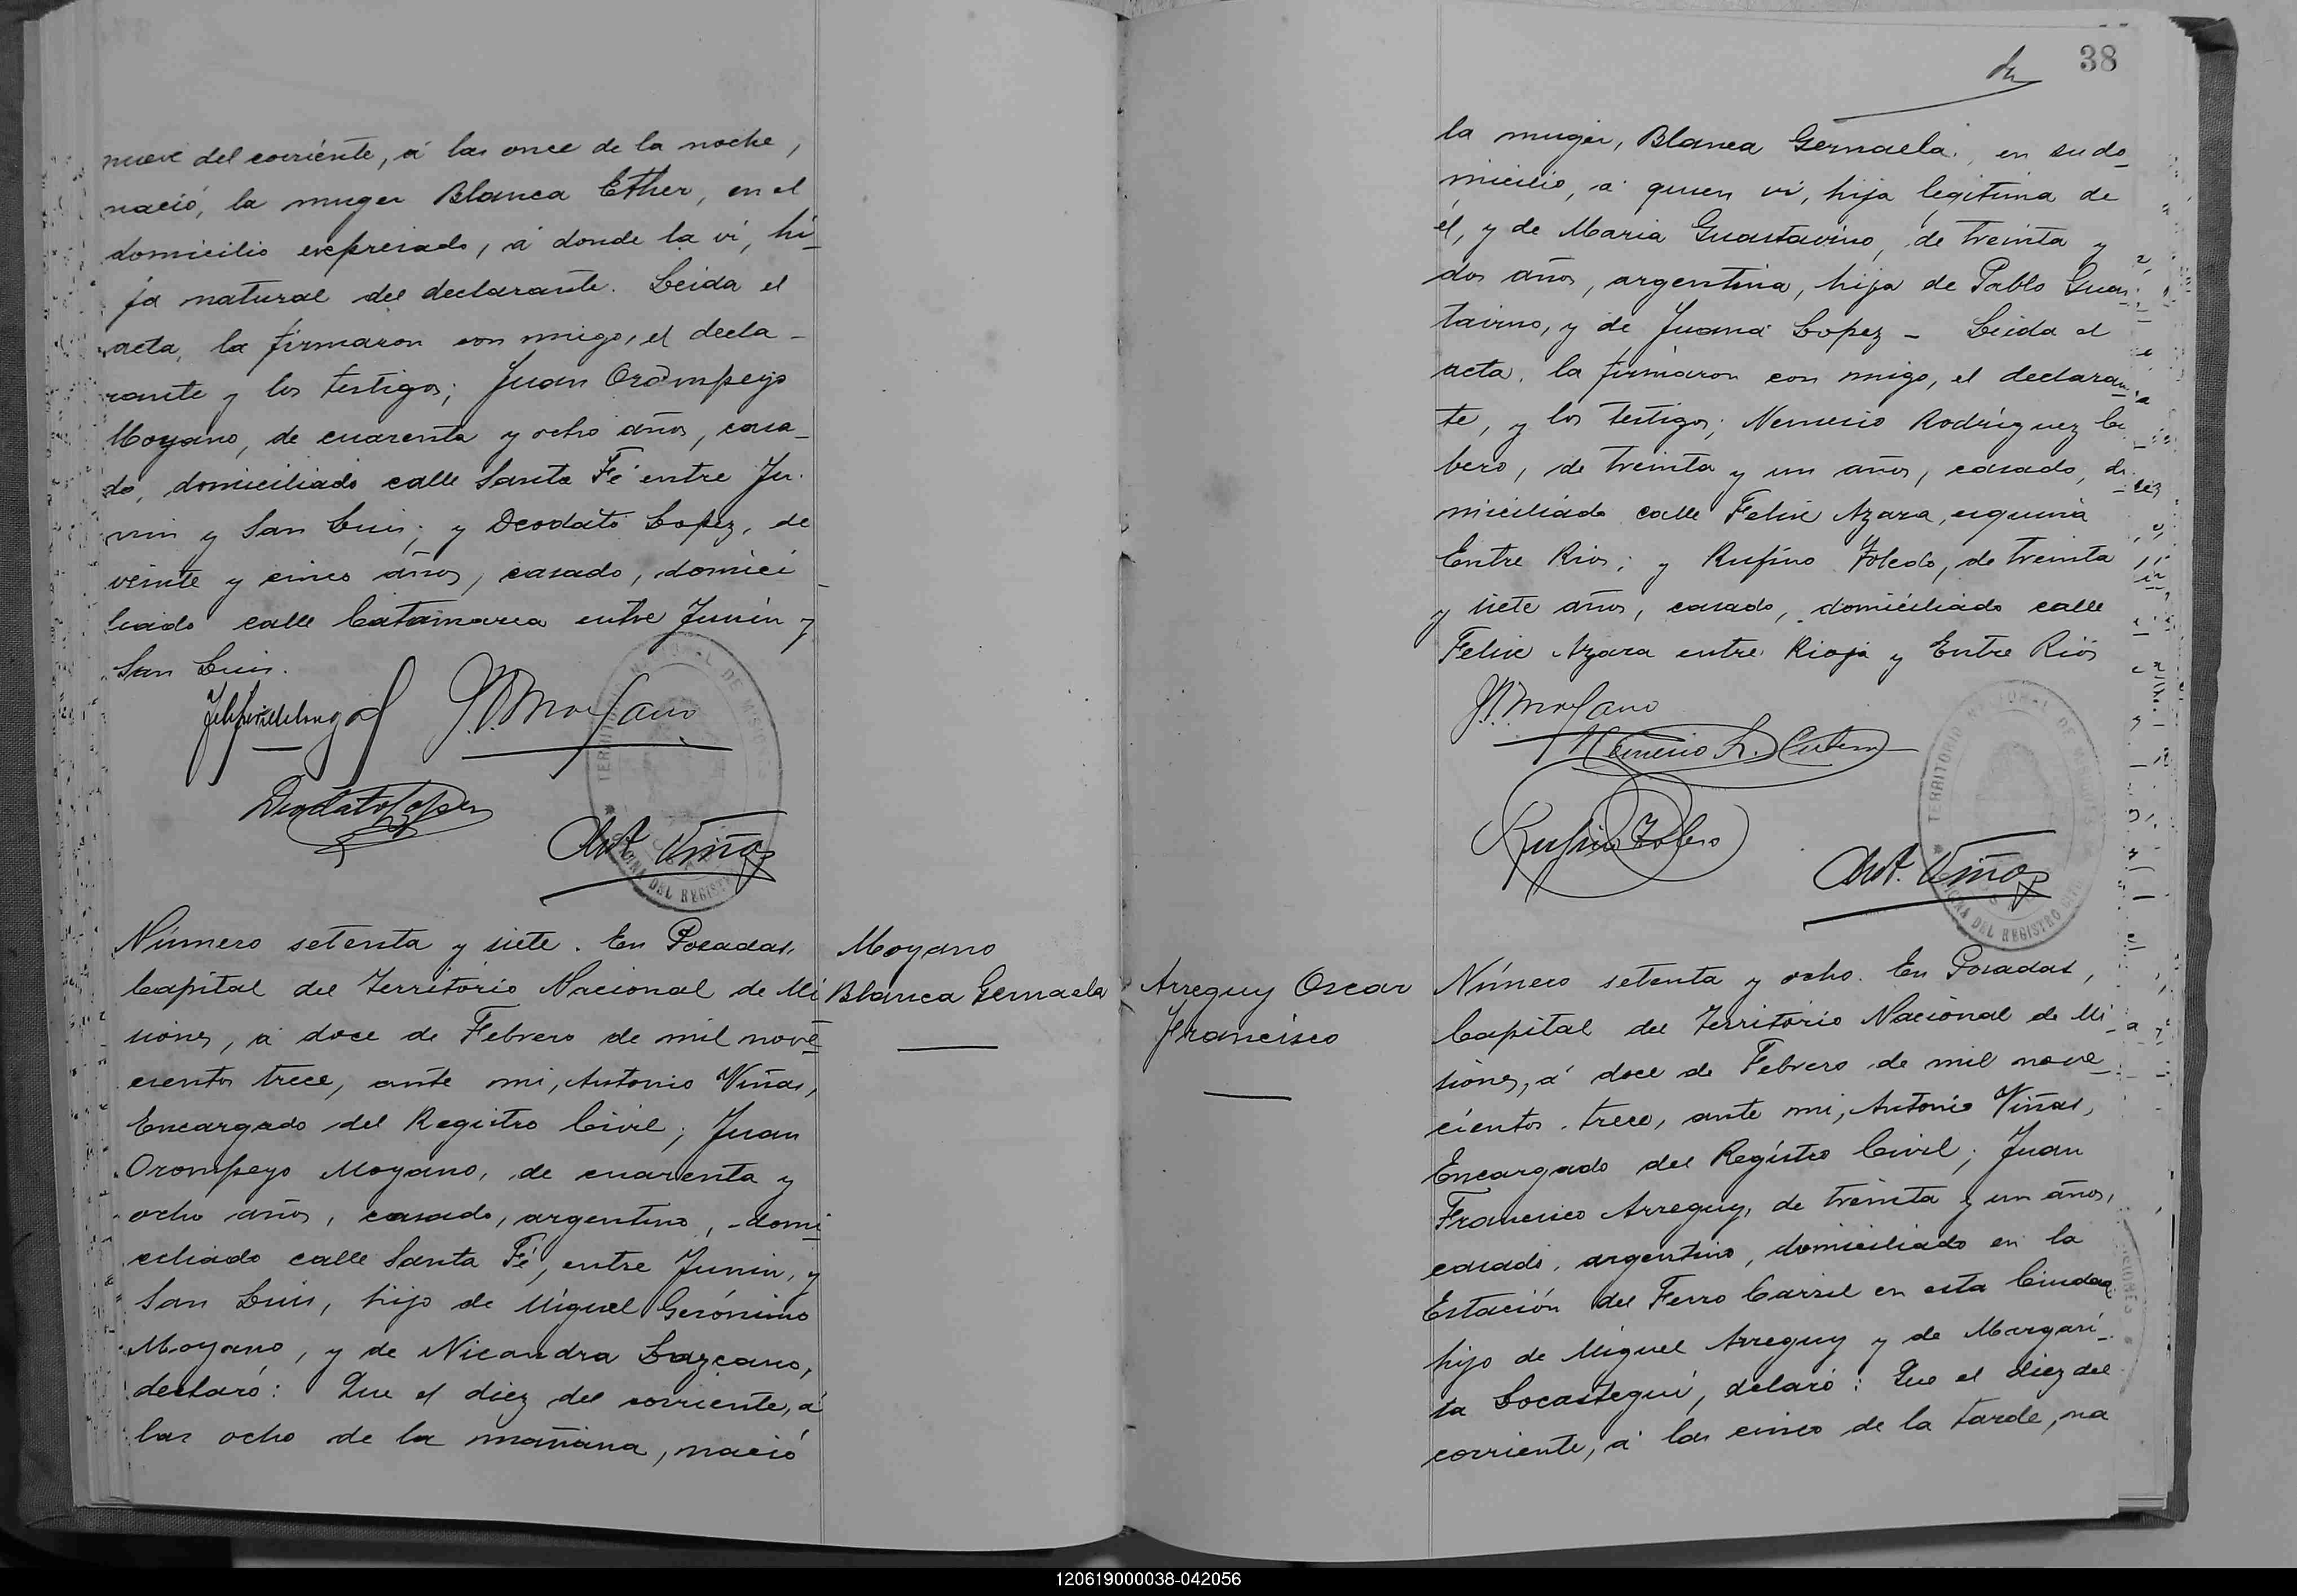 nueve del corriente, á las once de la noche,
nació, la muger Blanca Ether, en el
domicilio expresado, á donde la ví, hi_
ja natural del declarante. Leida el
acta, la firmaron con migo, el decla_
rante y los testigos; Juan Orompeyo
Moyano, de cuarenta y ocho años, casa_
do, domiciliado calle Santa Fé entre Ju_
nin y San Luis; y Deodato Lopez, de
veinte y cinco años, casado, domici_
liado calle Catamarca entre Junin y
San Luis.
J. O. Moyano
Deodato Lopez
Ant. Viñas
TERRITORIO NACIONAL DE MISIONES
OFICINA DEL REGISTRO
Número setenta y siete. En Posadas,
Capital del Territorio Nacional de Mi
siones, á doce de Febrero de mil nove_
cientos trece, ante mi, Antonio Viñas,
Encargado del Registro Civil; Juan
Orompeyo Moyano, de cuarenta y
ocho años, casado, argentino, domi_
ciliado calle Santa Fé, entre Junin, y
San Luis, hijo de Miguel Gerónimo
Moyano, y de Nicandra Lazcano,
declaró: Que el diez del corriente, á
las ocho de la mañana, nació
Moyano
Blanca Gernaela
38
la muger, Blanca Gernaela, en su do_
micilio, á quien ví, hija legitima de
él, y de Maria Guastavino, de treinta y
dos años, argentina, hija de Pablo Guas_
tavino, y de Juana Lopez _ Leida el
acta, la firmaron con migo, el declaran_
te, y los testigos; Nemesio Rodríguez Cu
bero, de treinta y un años, casado, do_
miciliado calle Felix Azara, esquina
Entre Rios; y Rufino Toledo, de treinta
y siete años, casado, domiciliado calle
Felix Azara entre Rioja y Entre Rios
J. O. Moyano
Nemesio R. Cubero
Rufino Toledo
Ant. Viñas
TERRITORIO NACIONAL DE MISIONES
OFICINA DEL REGISTRO CIVIL
Arreguy Oscar
Francisco
Número setenta y ocho. En Posadas,
Capital del Territorio Nacional de Mi_
siones, á doce de Febrero de mil nove_
cientos trece, ante mi, Antonio Viñas,
Encargado del Registro Civil; Juan
Francisco Arreguy, de treinta y un años,
casado, argentino, domiciliado en la
Estación del Ferro Carril en esta Ciudad,
hijo de Miguel Arreguy y de Margari_
ta Locastegui, delaró: Que el diez del
corriente, á las cinco de la tarde, na
120619000038-042056